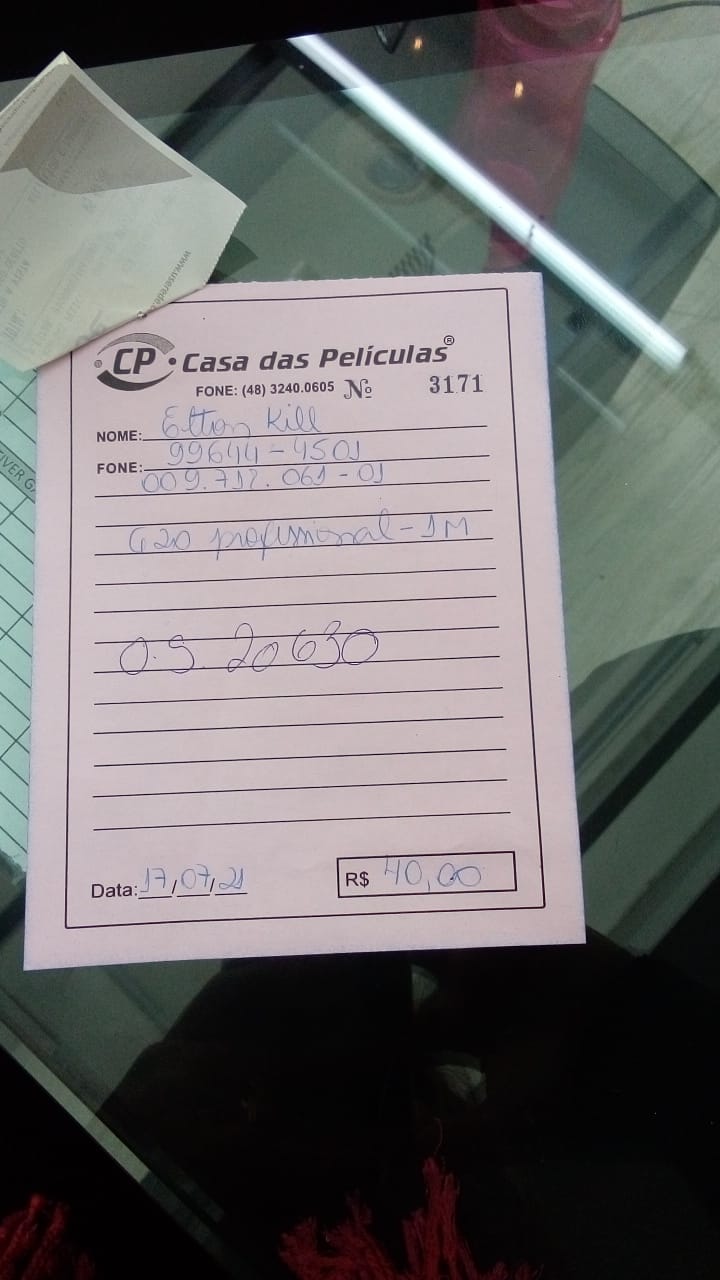 CP • Casa das Películas®
FONE: (48) 3240.0605 Nº 3171
NOME: Elton Kill
FONE: 99644-4501
009.712.061-01
G20 profissional - 1M
O.S. 20630
Data: 17/07/21 R$ 40,00